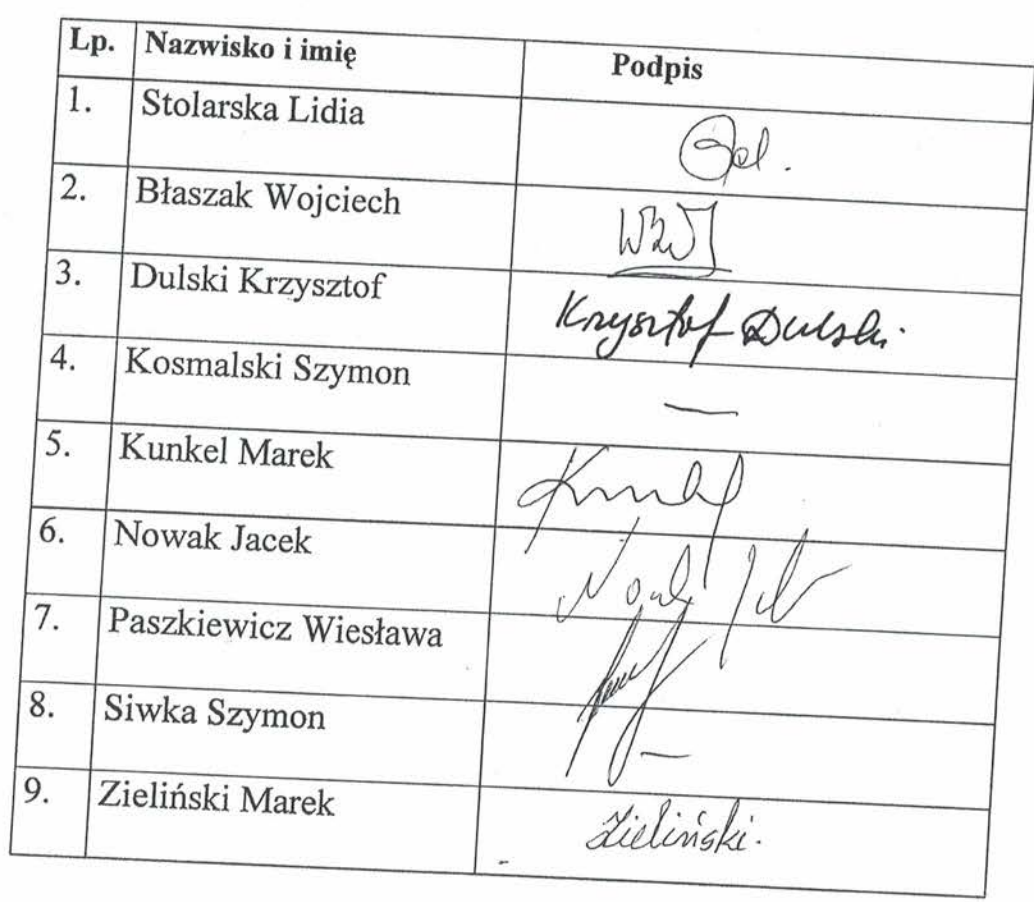 Lp. Nazwisko i imię Podpis
1. Stolarska Lidia
2. Błaszak Wojciech
3. Dulski Krzysztof Krzysztof Dulski.
4. Kosmalski Szymon —
5. Kunkel Marek Kunkel
6. Nowak Jacek Nowak
7. Paszkiewicz Wiesława
8. Siwka Szymon —
9. Zieliński Marek Zieliński.